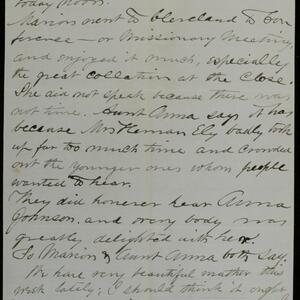 today noon.
Marion went to Cleveland to Con-
ference - or Missionary Meeting,
and enjoyed it much, especially
the great collation at the close.
She did not speak because there was
not time. Aunt Anna says it was
because Mrs Heman Ely badly took
up far too much time and crowded
out the younger ones whom people
wanted to hear.
They did however hear Anna
Johnson. and every body was
greatly delighted with her.
So Marion & Aunt Anna both say.
We have very beautiful weather this
week lately; I should think it ought